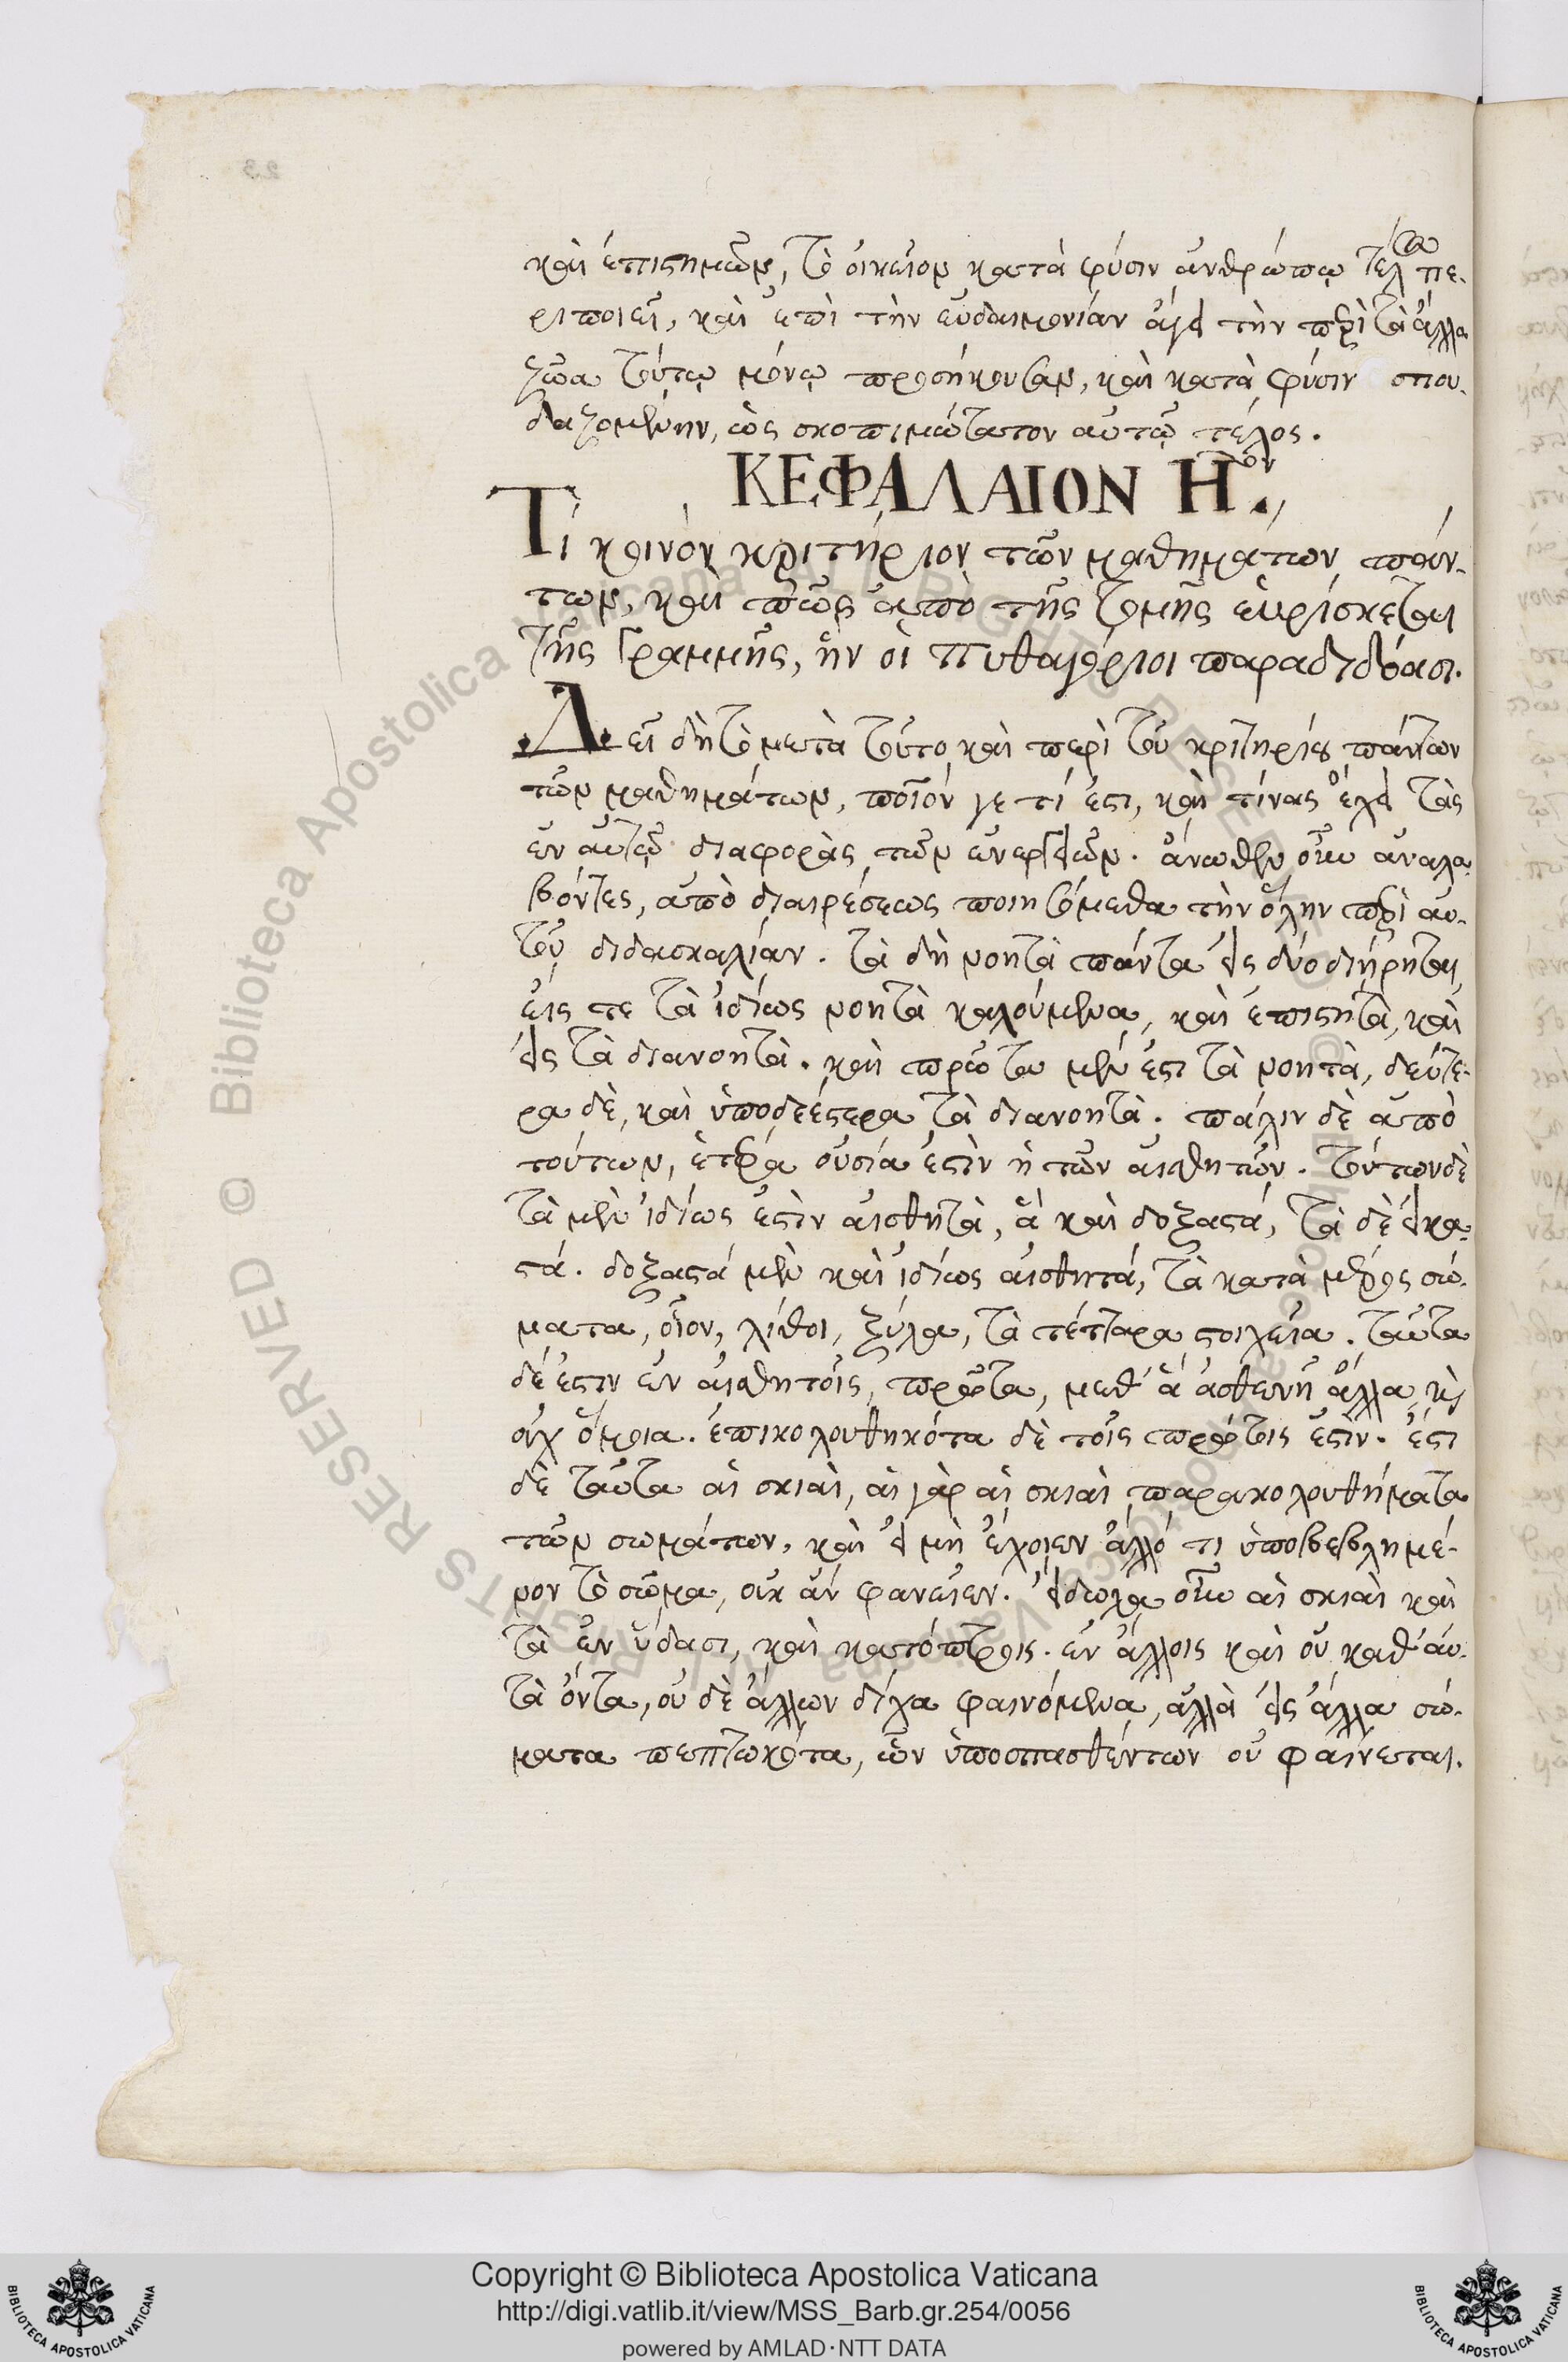 καὶ ἐπιστημῶν, τὸ οἰκεῖον κατὰ φύσιν ἀνθρώπῳ τέλος πε-
ριποιεῖ, καὶ ἐπὶ τὴν εὐδαιμονίαν ἄγει τὴν περὶ τὰ ἄλλα
ζῶα τούτῳ μόνῳ προσήκουσαν, καὶ κατὰ φύσιν σπου-
δαζομένην, ὡς σκοπιμώτατον αὐτῷ τέλος.
ΚΕΦΑΛΑΙΟΝ Η.ον
Τί κοινὸν κριτήριον τῶν μαθημάτων πάν-
των, καὶ πῶς ἀπὸ τῆς τομῆς εὑρίσκεται
τῆς γραμμῆς, ἣν οἱ Πυθαγόρειοι παραδιδόασι.
Δεῖ δὴ τὸ μετὰ τοῦτο καὶ περὶ τοῦ κριτηρίου πάντων
τῶν μαθημάτων, ποῖόν γε τί ἐστι, καὶ τίνας ἔχει τὰς
ἐν αὐτῷ διαφορὰς τῶν ἐνεργειῶν. ἄνωθεν οὖν ἀναλα-
βόντες, ἀπὸ διαιρέσεως ποιησόμεθα τὴν ὅλην περὶ αὐ-
τοῦ διδασκαλίαν. τὰ δὴ νοητὰ πάντα εἰς δύο διῄρηται,
εἴς τε τὰ ἰδίως νοητὰ καλούμενα, καὶ ἐπιστητὰ, καὶ
εἰς τὰ διανοητὰ. καὶ πρῶτα μέν ἐστι τὰ νοητὰ, δεύτε-
ρα δὲ, καὶ ὑποδεέστερα τὰ διανοητὰ. πάλιν δὲ ἀπὸ
τούτων, ἑτέρα οὐσία ἐστὶν ἡ τῶν αἰσθητῶν. τούτων δὲ
τὰ μὲν ἰδίως ἐστὶν αἰσθητὰ, ἃ καὶ δοξαστά, τὰ δὲ εἰκα-
στά. δοξαστά μὲν καὶ ἰδίως αἰσθητά, τὰ κατὰ μέρος σώ-
ματα, οἷον, λίθοι, ξύλα, τὰ τέτταρα στοιχεῖα. ταῦτα
δέ ἐστιν ἐν αἰσθητοῖς, πρῶτα, μεθ' ἃ ἀσθενῆ ἄλλα, καὶ
οὐχ ὅμοια. ἐπικολουθηκότα δὲ τοῖς πρώτοις ἐστίν. ἔστι
δὲ ταῦτα αἱ σκιαὶ, αἱ γὰρ αἱ σκιαὶ παρακολουθήματα
τῶν σωμάτων, καὶ εἰ μὴ ἔχοιεν ἄλλό τι ὑποβεβλημέ-
νον τὸ σῶμα, οὐκ ἂν φανεῖεν. εἴδωλα οὖν αἱ σκιαὶ καὶ
τὰ ἐν ὕδασι, καὶ κατόπτροις. ἐν ἄλλοις καὶ οὐ καθ' αὑ-
τὰ ὄντα, οὐ δὲ ἄλλων δίχα φαινόμενα, ἀλλὰ εἰς ἄλλα σώ-
ματα πεπτωκότα, ὧν ὑποσπασθέντων οὐ φαίνεται.
Copyright © Biblioteca Apostolica Vaticana
http://digi.vatlib.it/view/MSS_Barb.gr.254/0056
powered by AMLAD·NTT DATA